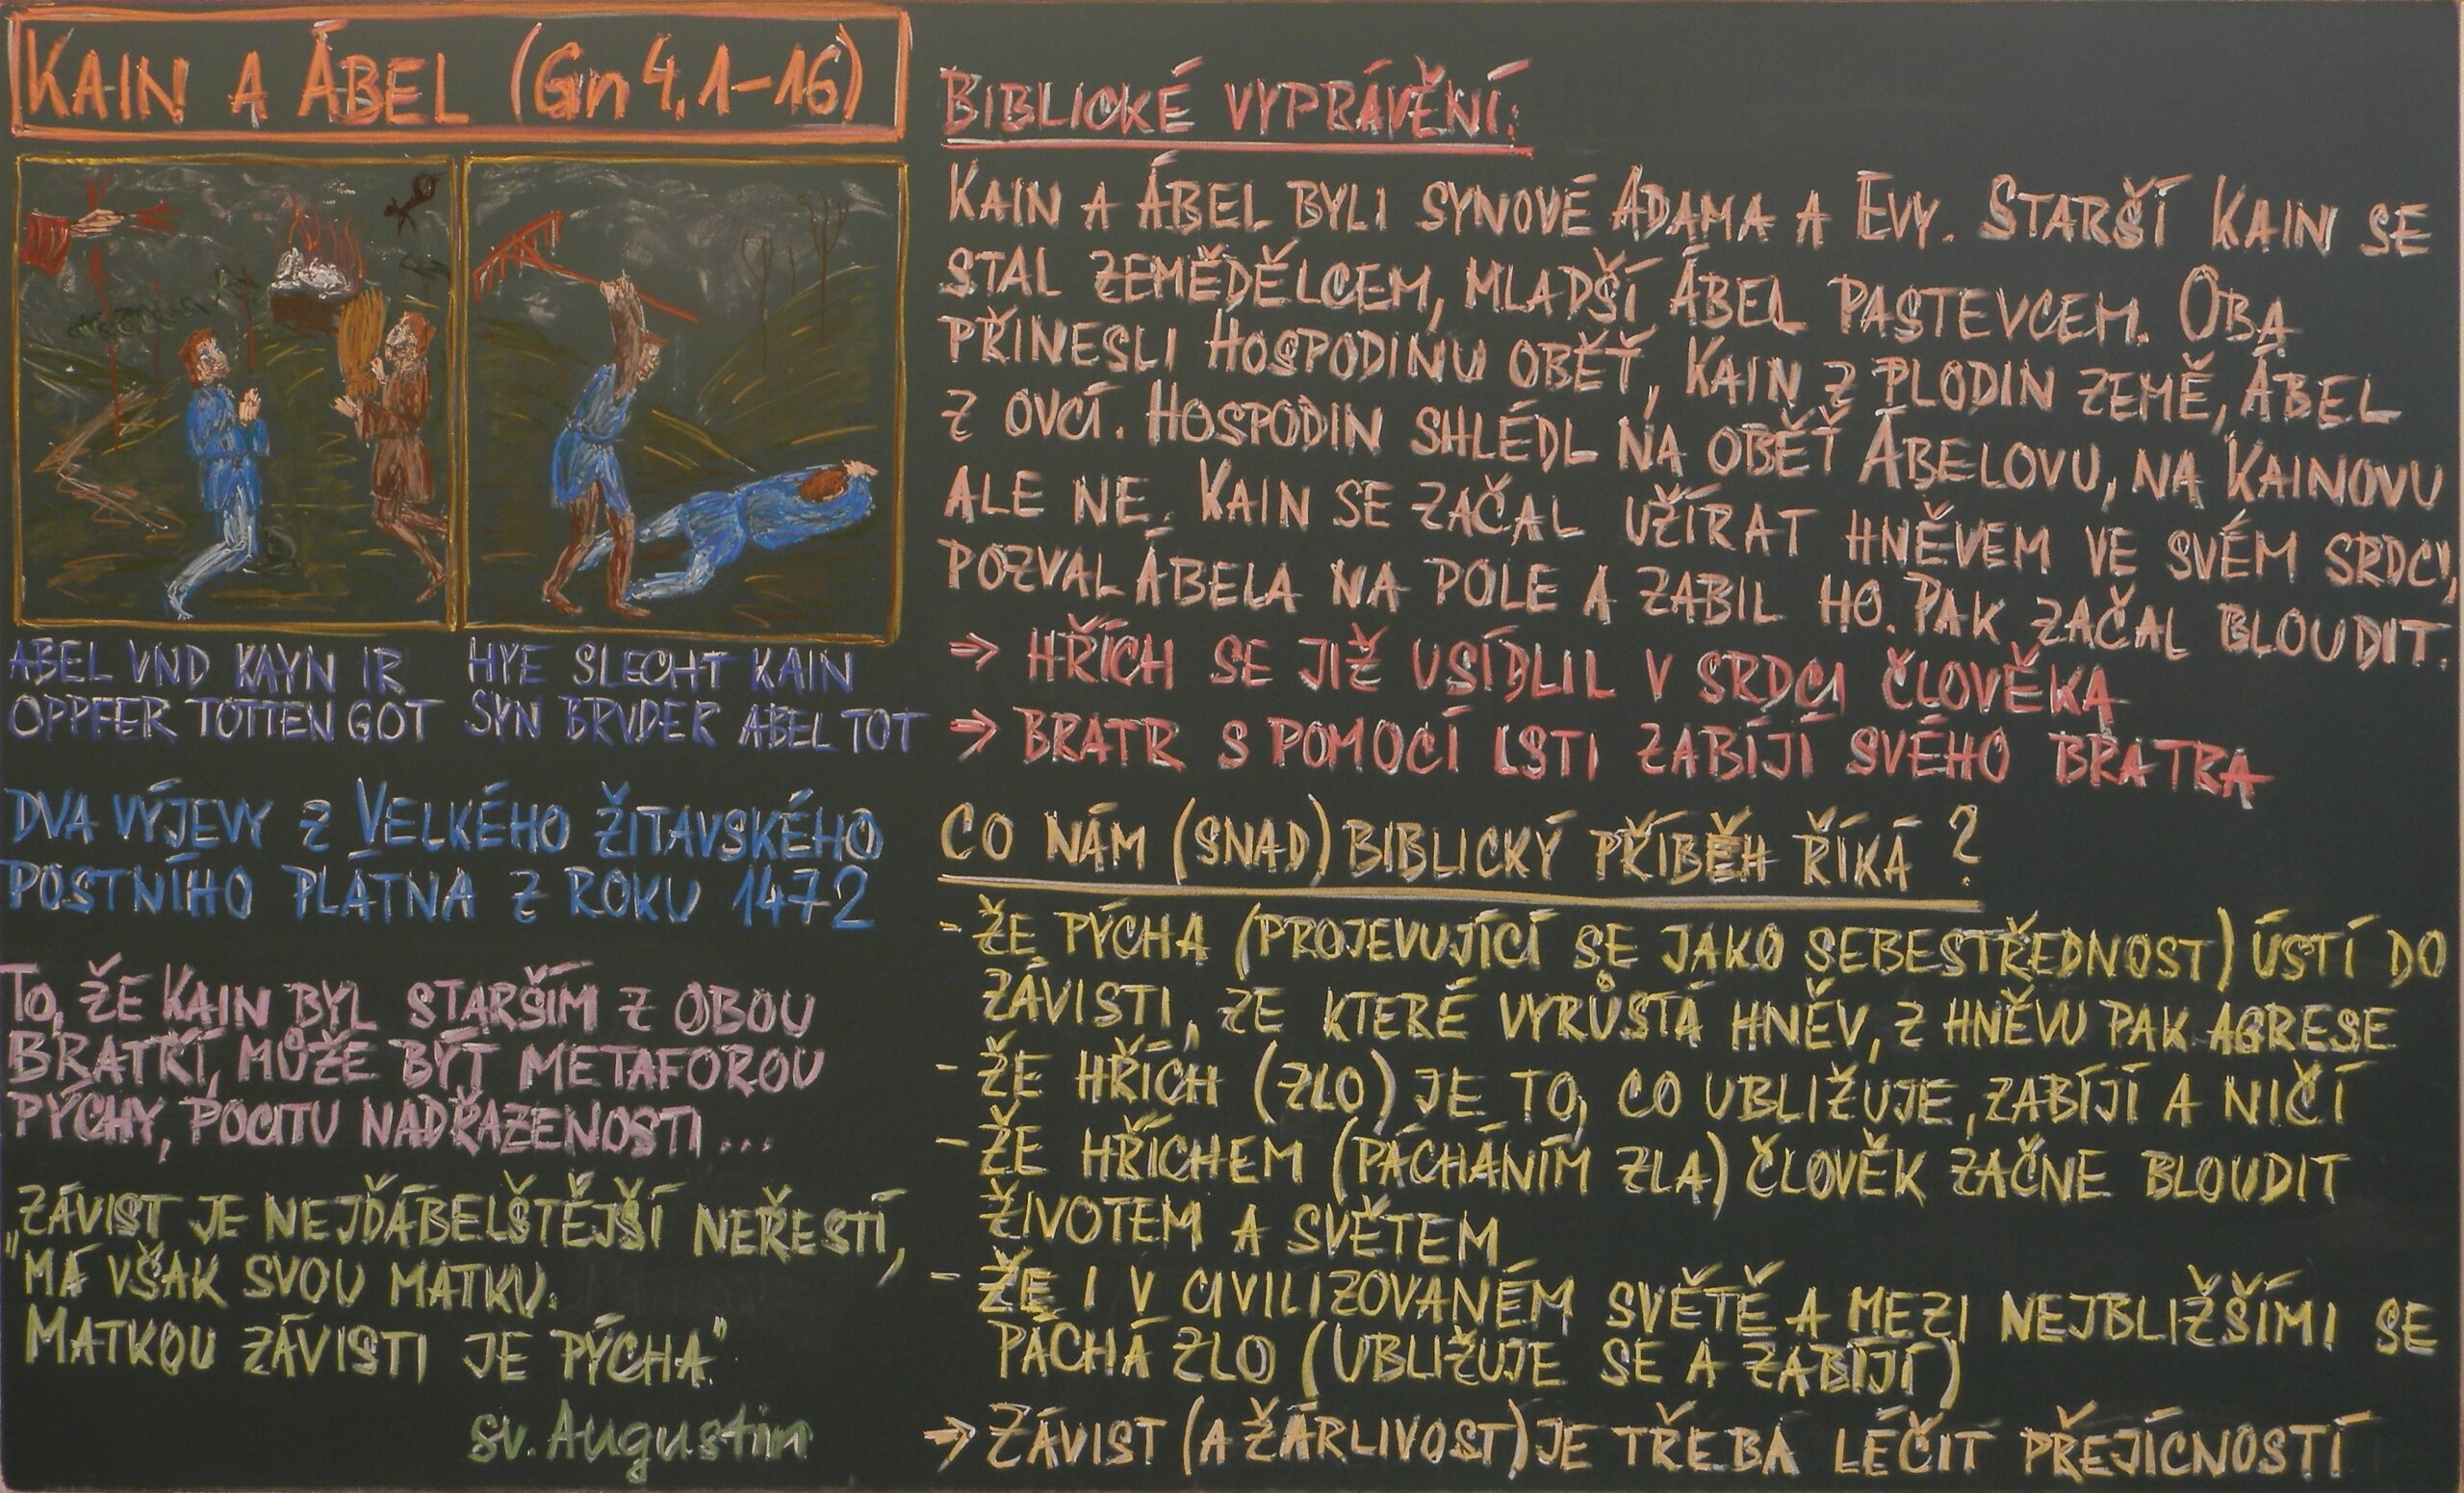 KAIN A ÁBEL (Gn 4,1-16)
ABEL VND KAYN IR
OPPFER TOTTEN GOT
HYE SLECHT KAIN
SYN BRVDER ABEL TOT
DVA VÝJEVY Z VELKÉHO ŽITAVSKÉHO
POSTNÍHO PLÁTNA Z ROKU 1472
TO, ŽE KAIN BYL STARŠÍM Z OBOU
BRATŘÍ, MŮŽE BÝT METAFOROU
PÝCHY, POCITU NADŘAZENOSTI...
„ZÁVIST JE NEJĎÁBELŠTĚJŠÍ NEŘESTÍ,
MÁ VŠAK SVOU MATKU.
MATKOU ZÁVISTI JE PÝCHA."
sv. Augustin
BIBLICKÉ VYPRÁVĚNÍ:
KAIN A ÁBEL BYLI SYNOVÉ ADAMA A EVY. STARŠÍ KAIN SE
STAL ZEMĚDĚLCEM, MLADŠÍ ÁBEL PASTEVCEM. OBA
PŘINESLI HOSPODINU OBĚŤ, KAIN Z PLODIN ZEMĚ, ÁBEL
Z OVCÍ. HOSPODIN SHLÉDL NA OBĚŤ ÁBELOVU, NA KAINOVU
ALE NE. KAIN SE ZAČAL UŽÍRAT HNĚVEM VE SVÉM SRDCI,
POZVAL ÁBELA NA POLE A ZABIL HO. PAK ZAČAL BLOUDIT.
⇒ HŘÍCH SE JIŽ USÍDLIL V SRDCI ČLOVĚKA
⇒ BRATR S POMOCÍ LSTI ZABÍJÍ SVÉHO BRATRA
CO NÁM (SNAD) BIBLICKÝ PŘÍBĚH ŘÍKÁ?
- ŽE PÝCHA (PROJEVUJÍCÍ SE JAKO SEBESTŘEDNOST) ÚSTÍ DO
ZÁVISTI, ZE KTERÉ VYRŮSTÁ HNĚV, Z HNĚVU PAK AGRESE
- ŽE HŘÍCH (ZLO) JE TO, CO UBLIŽUJE, ZABÍJÍ A NIČÍ
- ŽE HŘÍCHEM (PÁCHÁNÍM ZLA) ČLOVĚK ZAČNE BLOUDIT
ŽIVOTEM A SVĚTEM
- ŽE I V CIVILIZOVANÉM SVĚTĚ A MEZI NEJBLIŽŠÍMI SE
PÁCHÁ ZLO (UBLIŽUJE SE A ZABÍJÍ)
→ ZÁVIST (A ŽÁRLIVOST) JE TŘEBA LÉČIT PŘEJÍCNOSTÍ